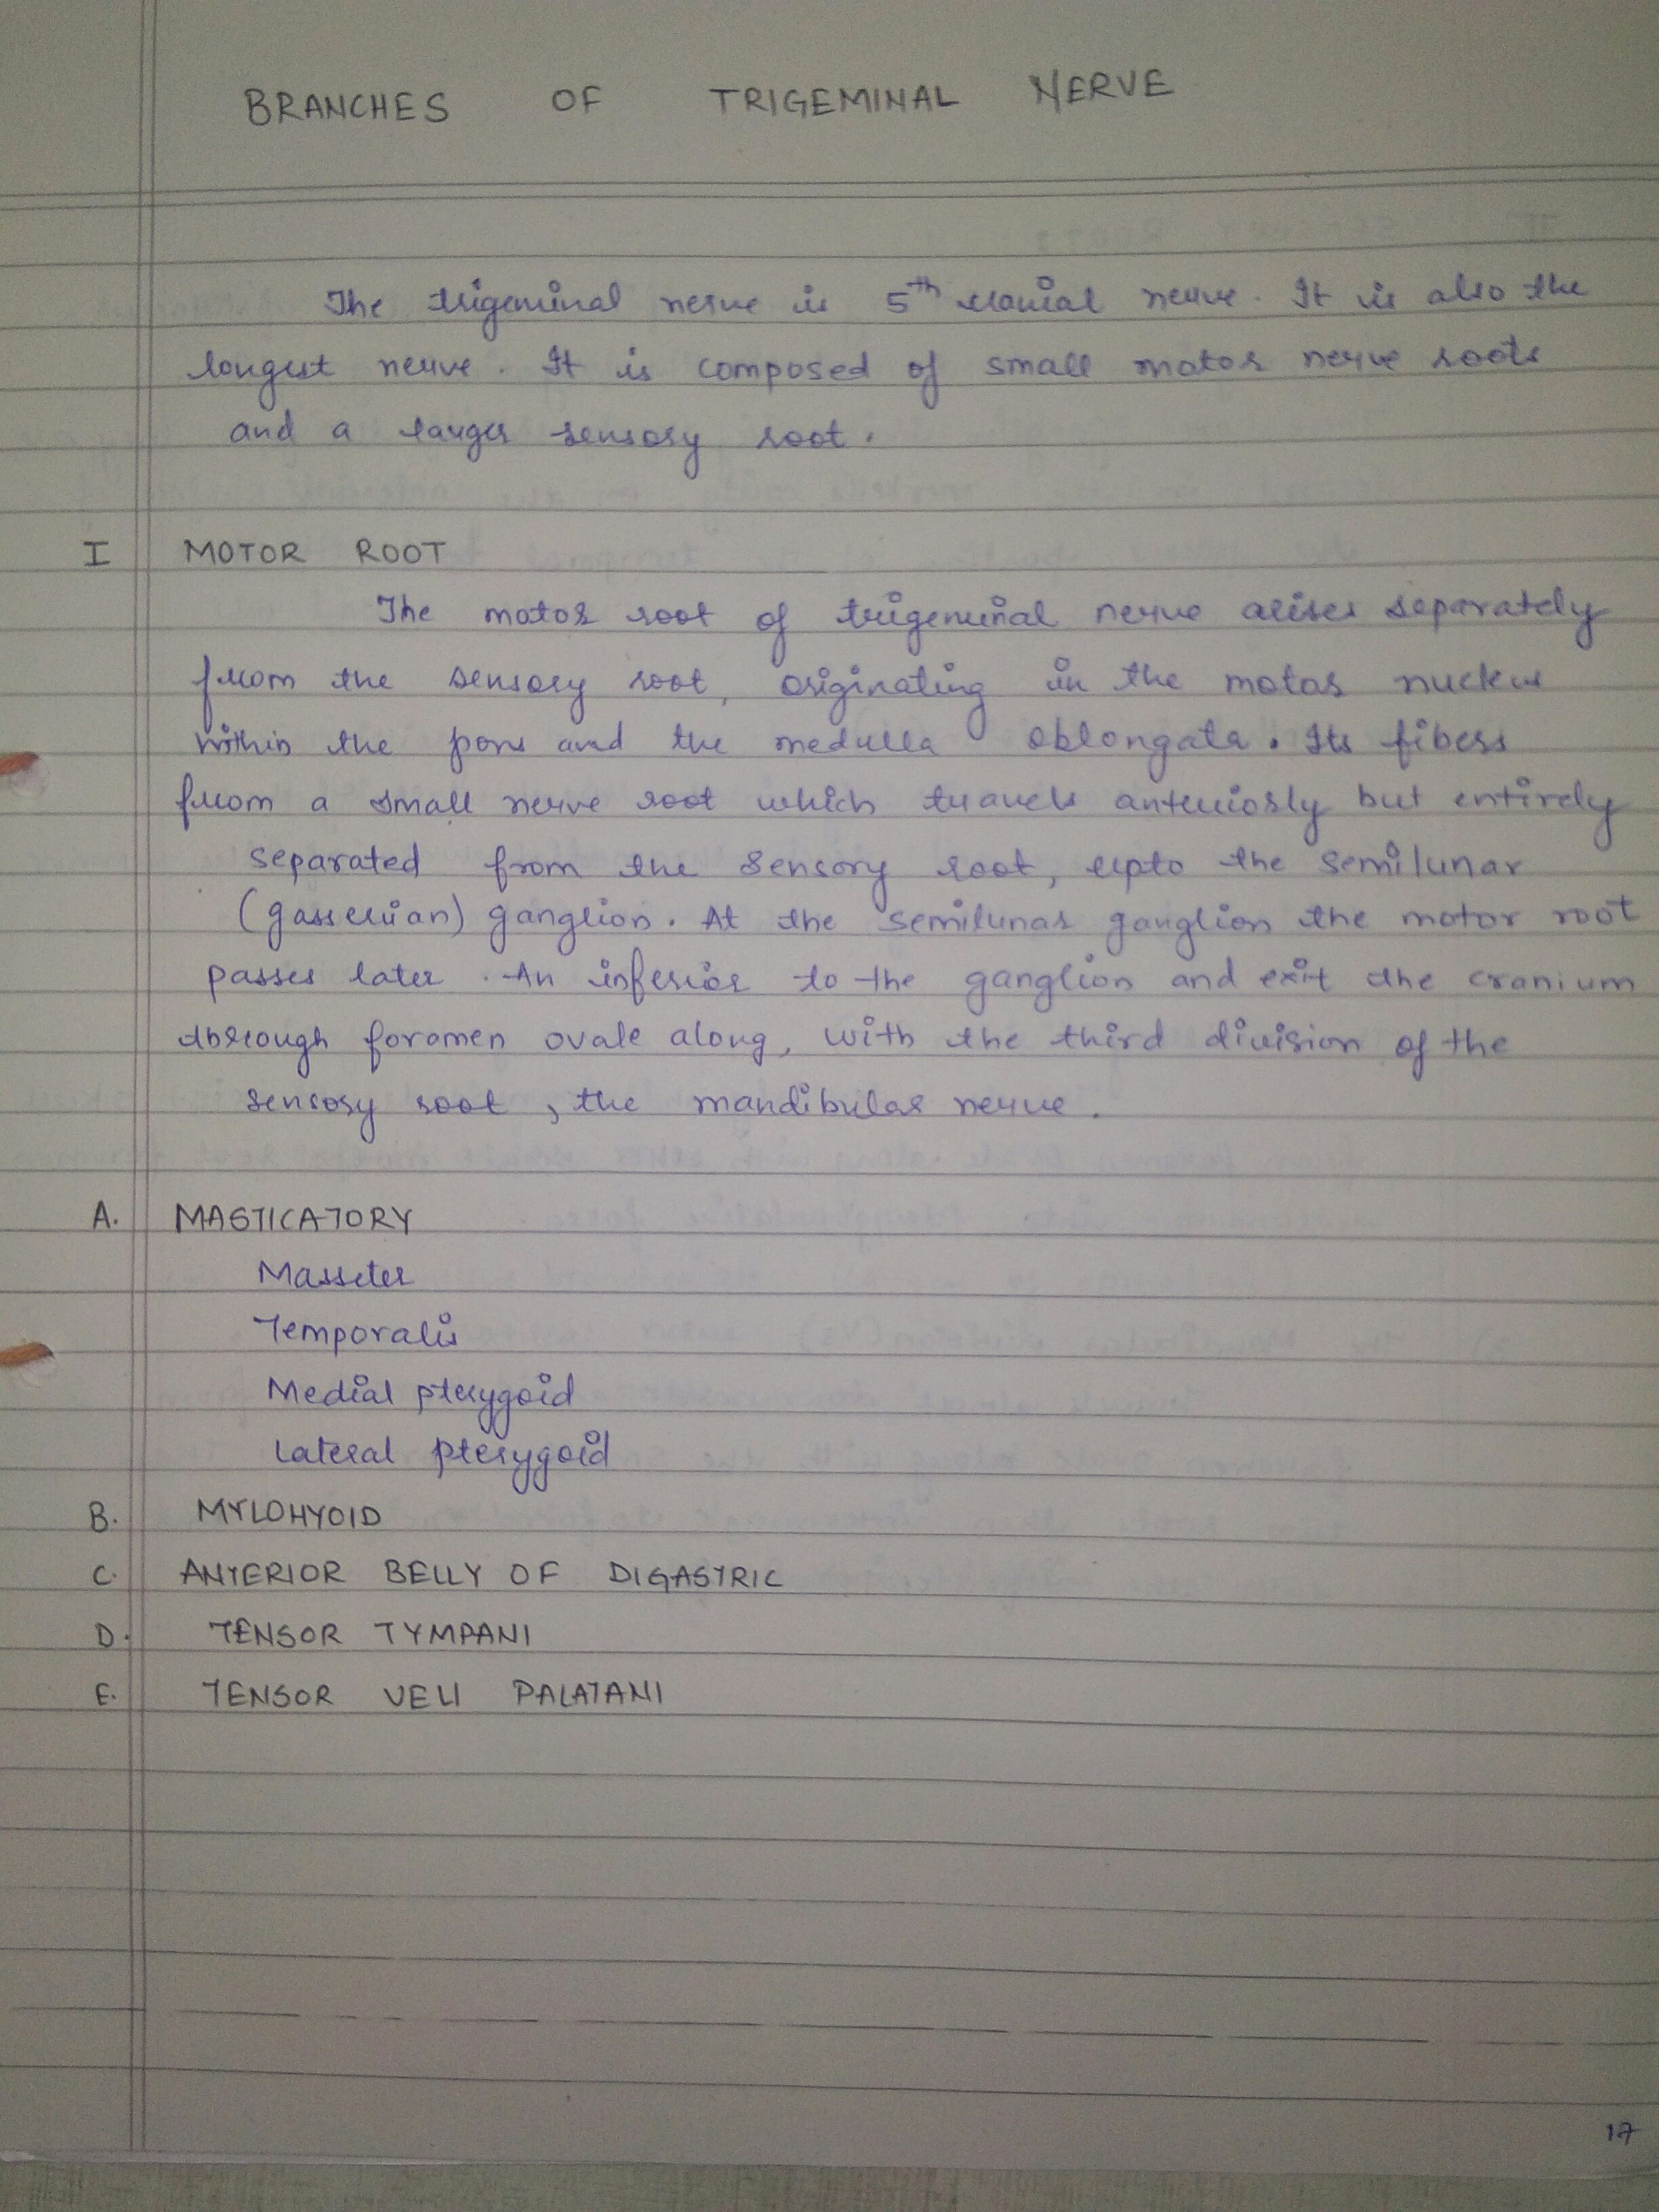 BRANCHES OF TRIGEMINAL NERVE
The trigeminal nerve is 5th cranial nerve. It is also the
longest nerve. It is composed of small motor nerve roots
and a larger sensory root.
I MOTOR ROOT
The motor root of trigeminal nerve arises separately
from the sensory root, originating in the motor nucleus
within the pons and the medulla oblongata. Its fibers
from a small nerve root which travels anteriosly but entirely
separated from the sensory root, upto the semilunar
(gasserian) ganglion. At the semilunar ganglion the motor root
passes later. An inferior to the ganglion and exit the cranium
through foromen ovale along, with the third division of the
sensory root, the mandibular nerve.
A. MASTICATORY
Masseter
Temporalis
Medial pterygoid
Lateral pterygoid
B. MYLOHYOID
C. ANTERIOR BELLY OF DIGASTRIC
D. TENSOR TYMPANI
E. TENSOR VELI PALATANI
17